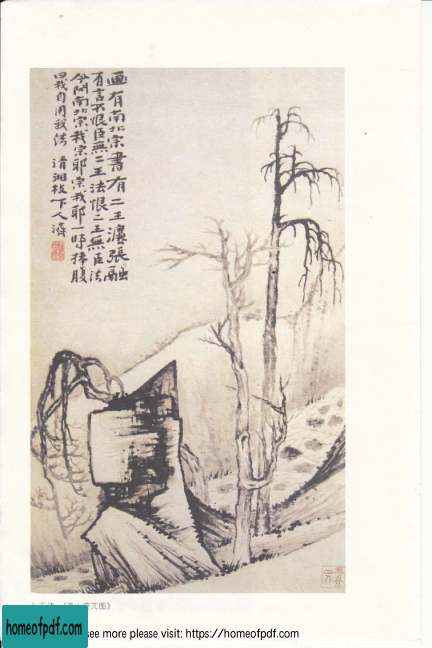 画有南北宗書有二王灋張融
有言不恨臣無二王法恨二王無臣法
今問南北宗我宗耶宗我耶一時捧腹
曰我自用我法 清湘枝下人濟
兀图》
homeofpdf.com
see more please visit: https://homeofpdf.com